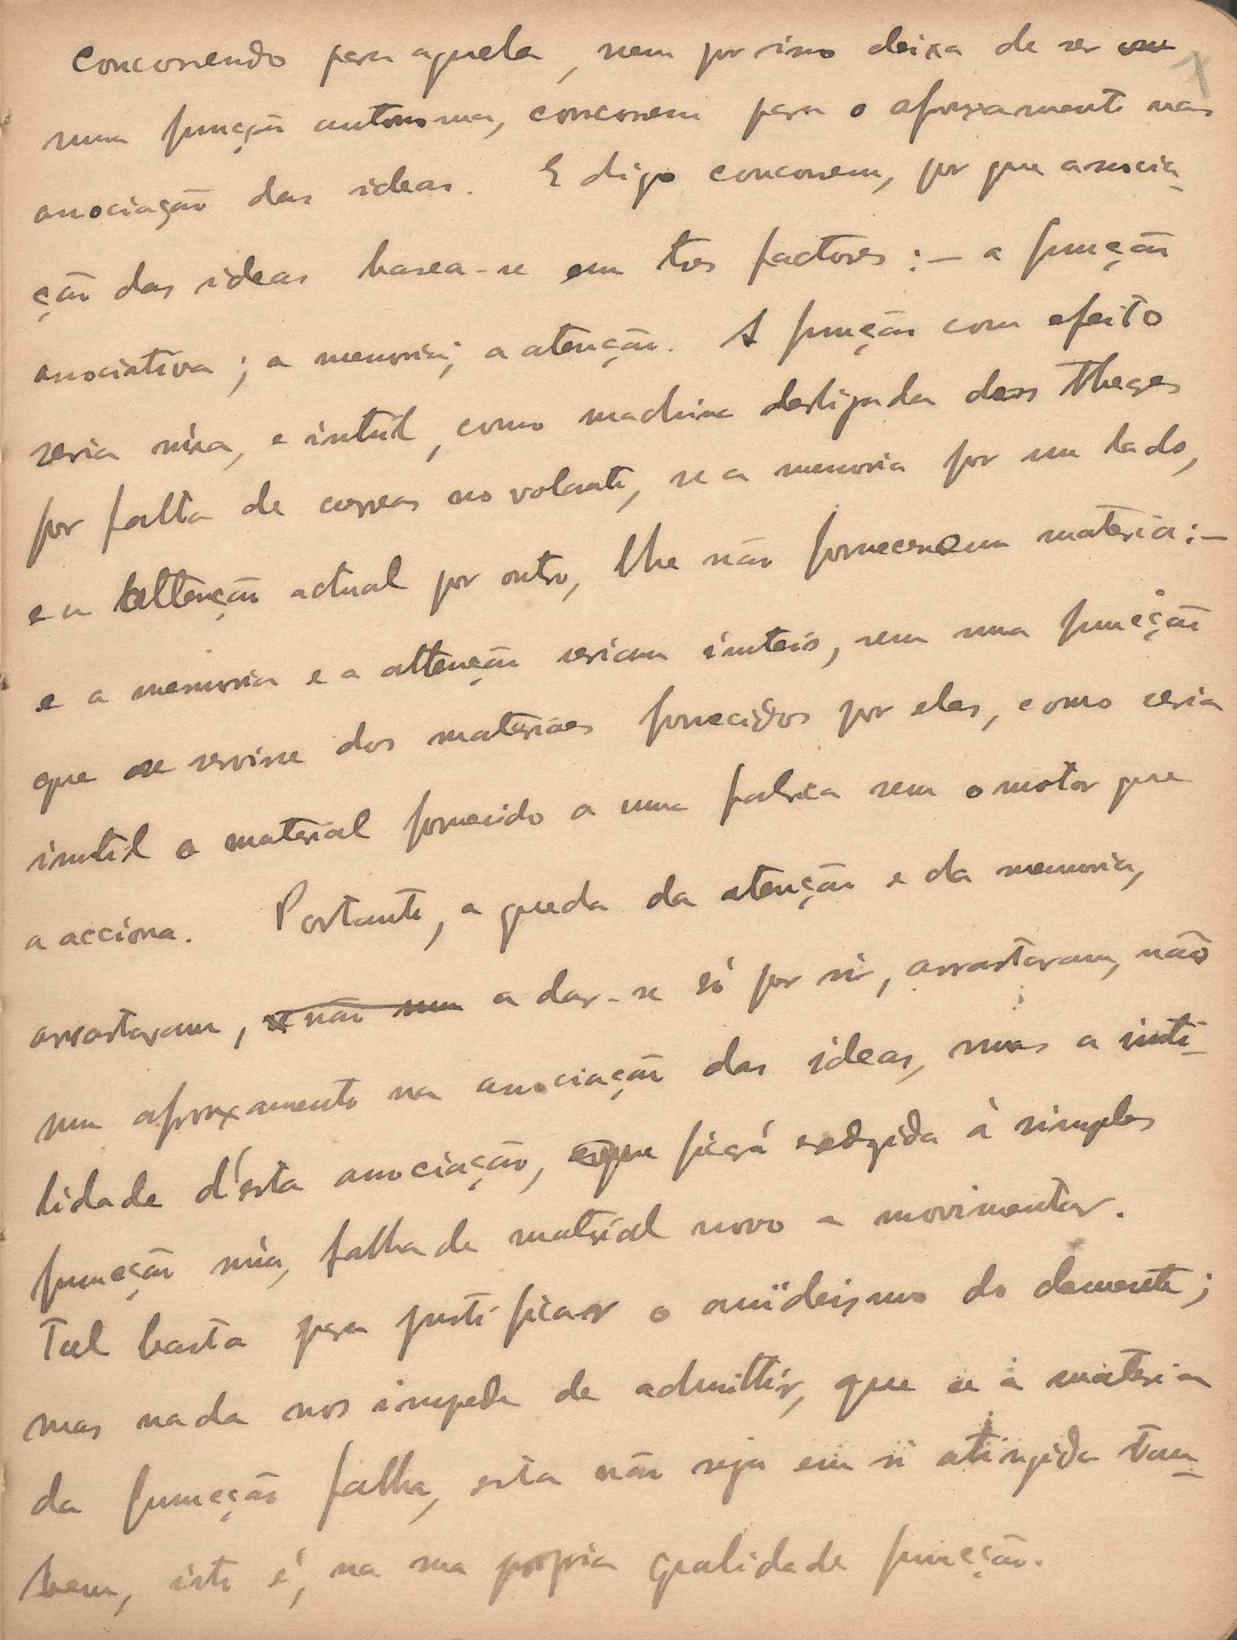 concorrendo para aquela, nem por isso deixa de ser
uma funcção autonoma, concorrem para o afrouxamento nas
associação das ideas. E digo concorrem, por que associa-
ção das ideas basea-se em tres factores:— a funcção
associativa; a memoria; a atenção. A funcção com efeito
seria núa, e inutil, como machina desligada das
por falta de correas no volante, se a memoria por um lado,
e a attenção actual por outro, lhe não fornecerem materia:—
e a memoria e a attenção seriam inuteis, sem uma funcção
que se servisse dos materiaes fornecidos por elas, como seria
inutil o material fornecido a uma fabrica sem o motor que
a acciona. Portanto, a queda da atenção e da memoria,
arrastaram, e não um a dar-se só por si, arrastaram, não
um afrouxamento na associação das ideas, mas a inuti-
lidade d'esta associação, que ficará redzida à simples
funcção núa, falha de material novo a movimentar.
Tal basta para justificar o oniïdeismo do demente;
mas nada nos impede de admittir, que se a materia
da funcção falha, esta não seja em si atingida tam-
bem, isto é, na sua propria qualidade funcção.